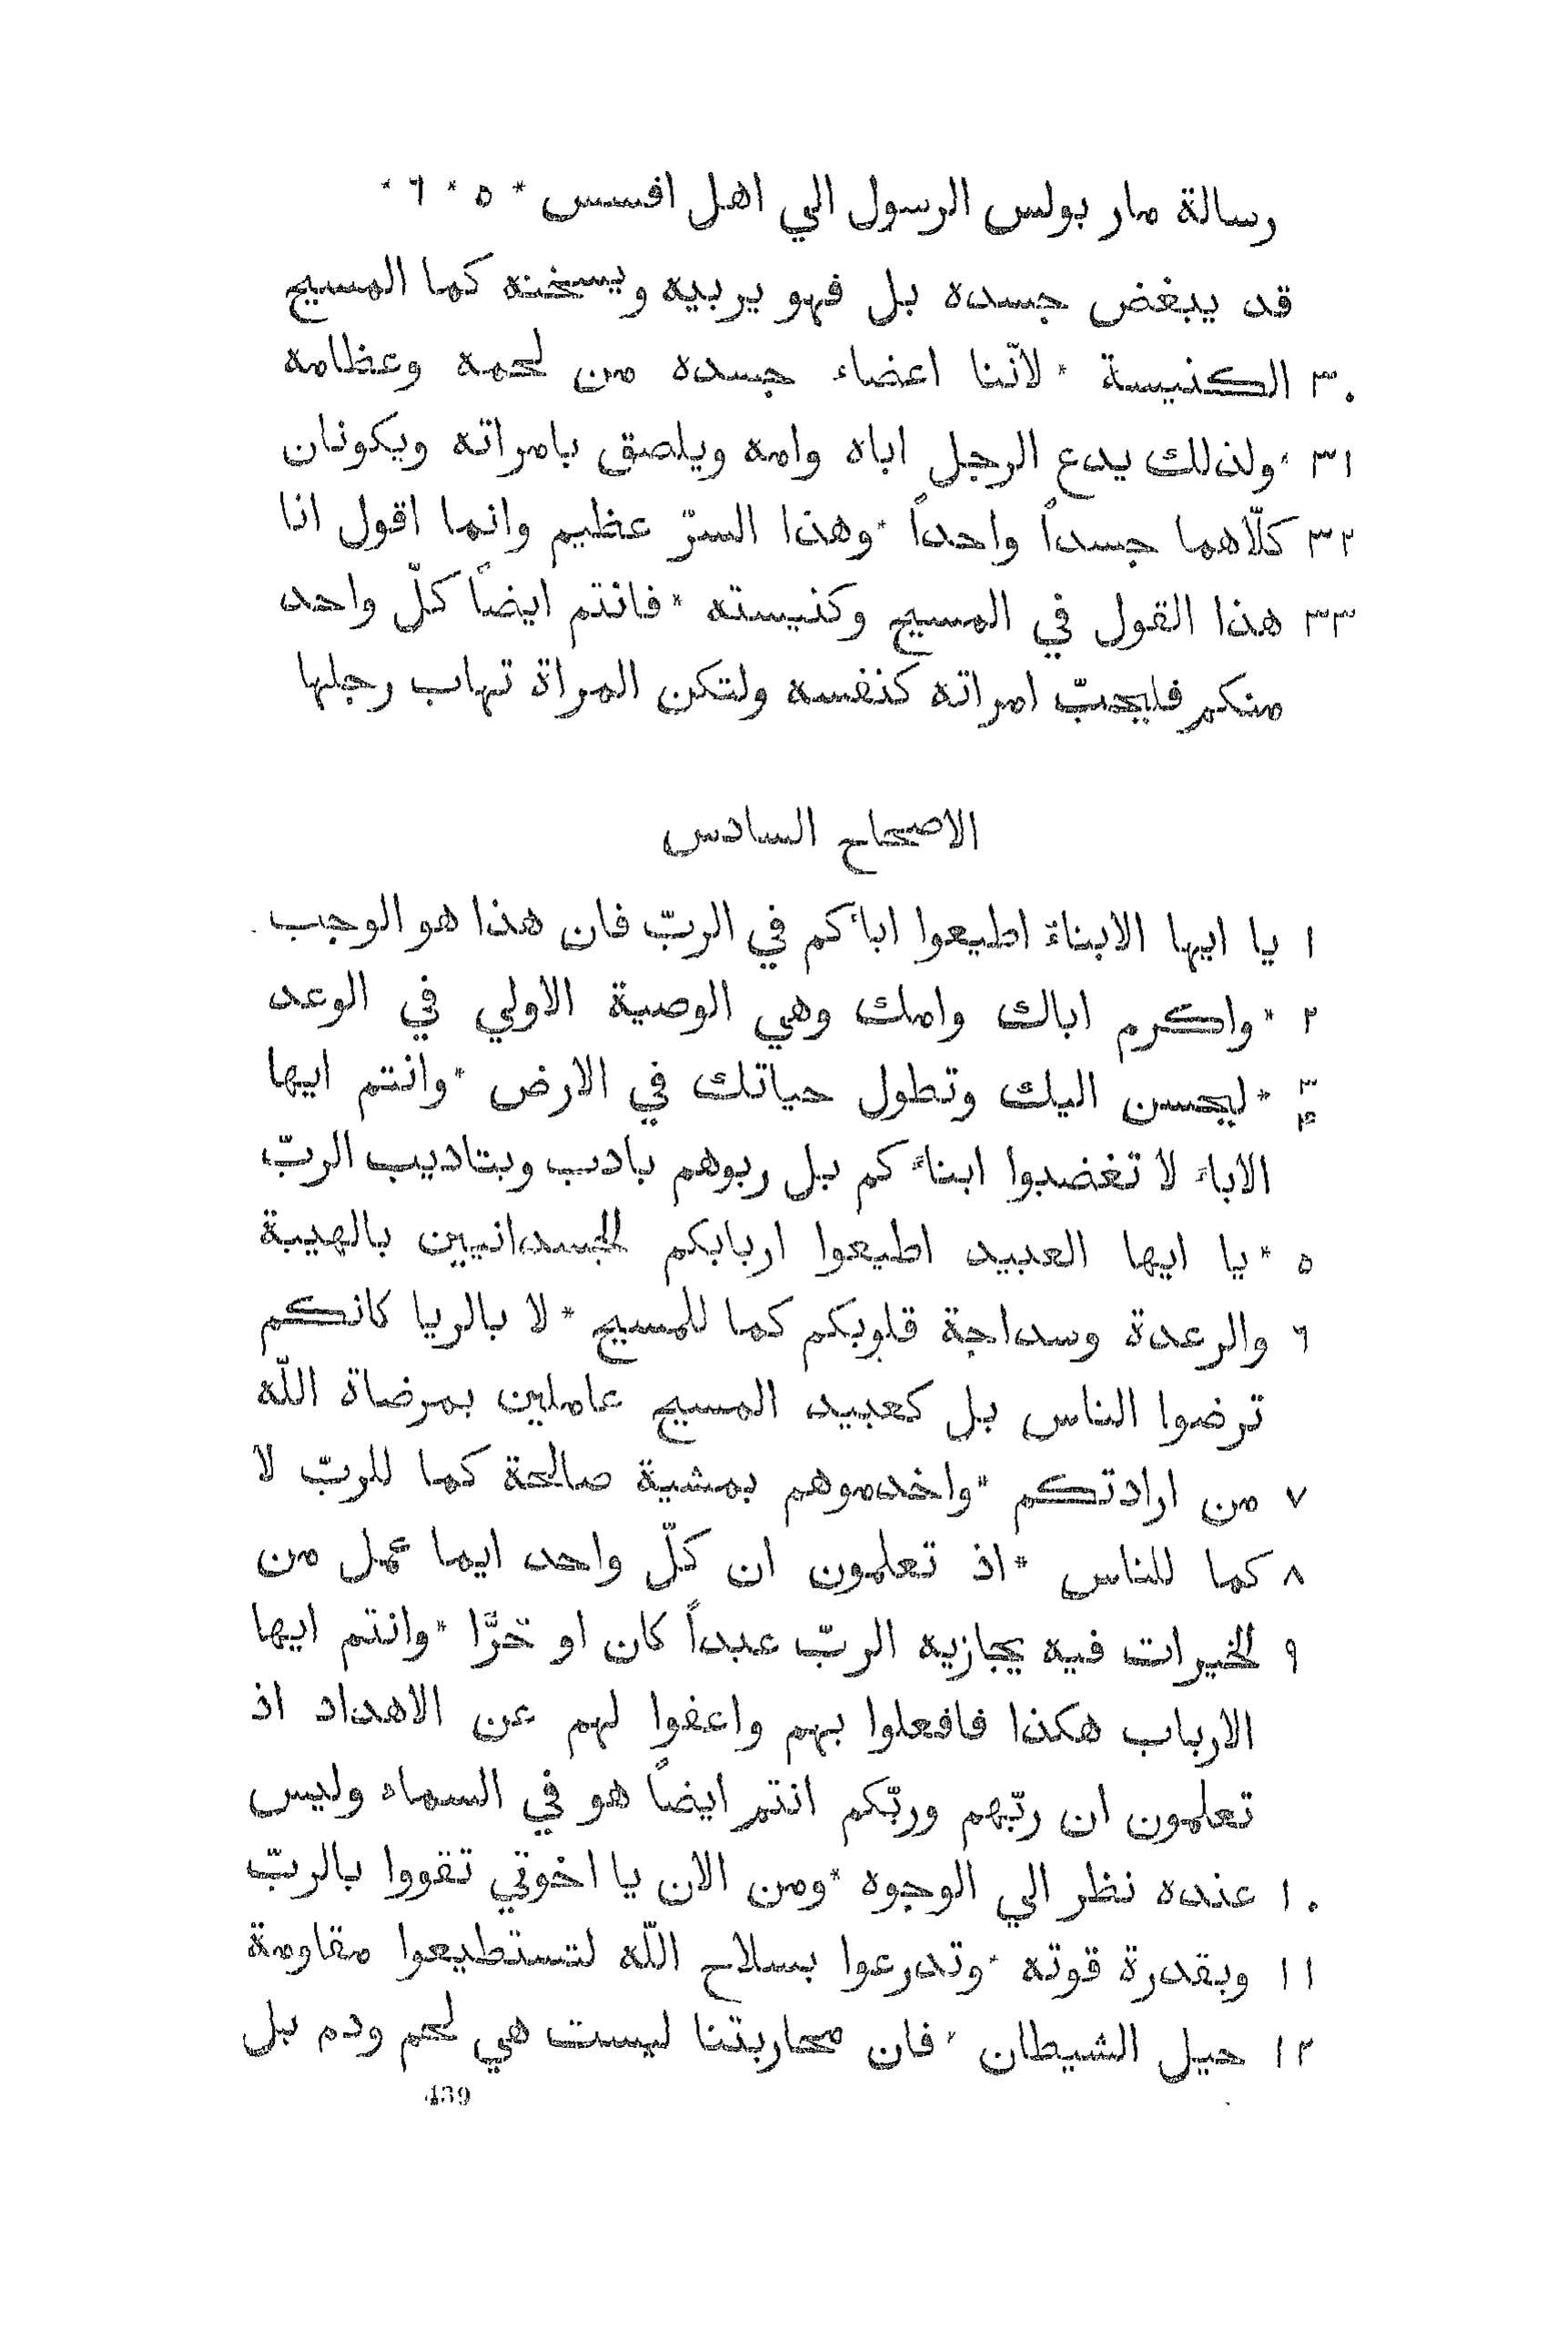 رسالة مار بولس الرسول الي اهل افسس * ٥ * ٦ *
قد يبغض جسده بل فهو يربيه ويسخنه كما المسيح
٣٠ الكنيسة * لاننّا اعضاء جسده من لحمه وعظامه
٣١ * ولذلك يدع الرجل اباه وامه ويلصق بامراته ويكونان
٣٢ كلّاهما جسداً واحداً * وهذا السرّ عظيم وانما اقول انا
٣٣ هذا القول في المسيح وكنيسته * فانتم ايضاً كلّ واحد
منكم فليحبّ امراته كنفسه ولتكن المراة تهاب رجلها
الاصحاح السادس
١ يا ايها الابناء اطيعوا اباءكم في الربّ فان هذا هو الوجب
٢ * واكرم اباك وامك وهي الوصية الاولي في الوعد
٣ ٤ * ليحسن اليك وتطول حياتك في الارض * وانتم ايها
الاباء لا تغضبوا ابناءكم بل ربوهم بادب وبتاديب الربّ
٥ * يا ايها العبيد اطيعوا اربابكم الجسدانيين بالهيبة
٦ والرعدة وسداجة قلوبكم كما للمسيح * لا بالريا كانكم
ترضوا الناس بل كعبيد المسيح عاملين بمرضاة اللّه
٧ من ارادتكم * واخدموهم بمشية صالحة كما للربّ لا
٨ كما للناس * اذ تعلمون ان كلّ واحد ايما عمل من
٩ الخيرات فيه يجازيه الربّ عبداً كان او حرّا * وانتم ايها
الارباب هكذا فافعلوا بهم واعفوا لهم عن الاهداد اذ
تعلمون ان ربّهم وربّكم انتم ايضاً هو في السماء وليس
١٠ عنده نظر الي الوجوه * ومن الان يا اخوتي تقووا بالربّ
١١ وبقدرة قوته * وتدرعوا بسلاح اللّه لتستطيعوا مقاومة
١٢ حيل الشيطان * فان محاربتنا ليست هي لحم ودم بل
439